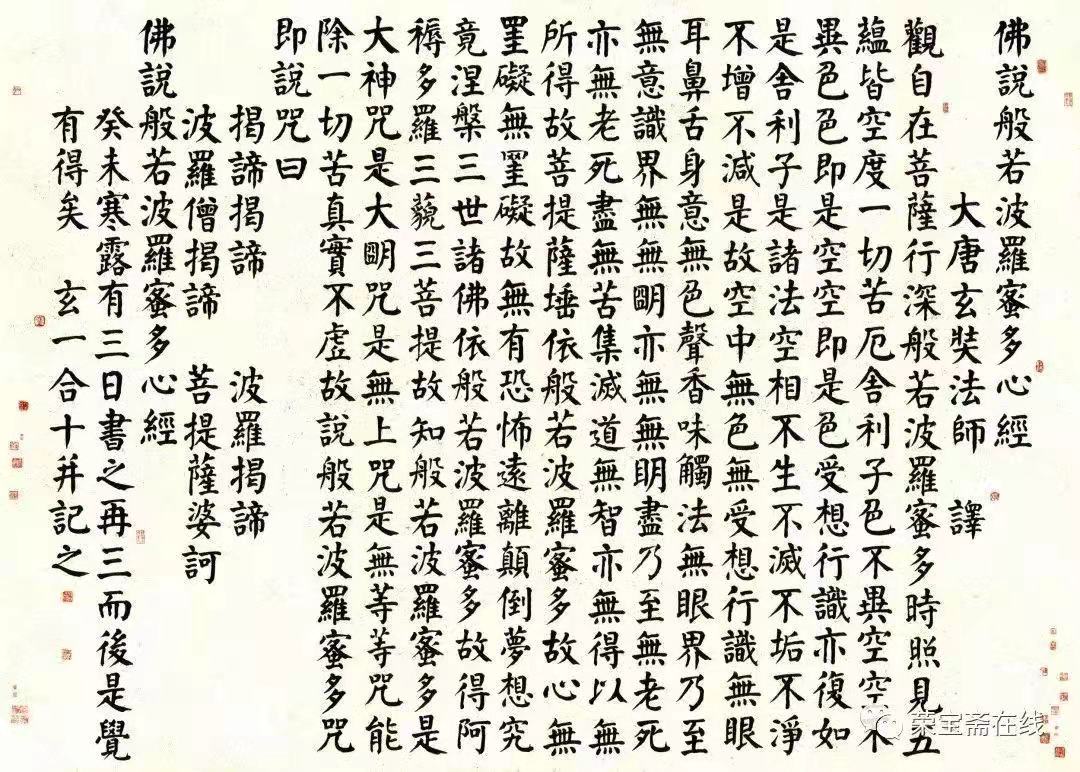 佛說般若波羅蜜多心經
大唐玄奘法師 譯
觀自在菩薩行深般若波羅蜜多時照見五
蘊皆空度一切苦厄舍利子色不異空空不
異色色即是空空即是色受想行識亦復如
是舍利子是諸法空相不生不滅不垢不淨
不增不減是故空中無色無受想行識無眼
耳鼻舌身意無色聲香味觸法無眼界乃至
無意識界無無明亦無無明盡乃至無老死
亦無老死盡無苦集滅道無智亦無得以無
所得故菩提薩埵依般若波羅蜜多故心無
罣礙無罣礙故無有恐怖遠離顛倒夢想究
竟涅槃三世諸佛依般若波羅蜜多故得阿
耨多羅三藐三菩提故知般若波羅蜜多是
大神咒是大明咒是無上咒是無等等咒能
除一切苦真實不虛故說般若波羅蜜多咒
即說咒曰
揭諦揭諦 波羅揭諦
波羅僧揭諦 菩提薩婆訶
佛說般若波羅蜜多心經
癸未寒露有三日書之再三而後是覺
有得矣 玄一合十并記之
荣宝斋在线